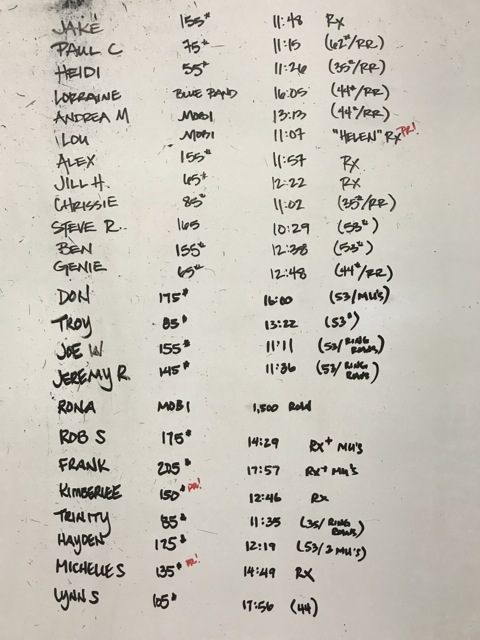 JAKE 155# 11:48 RX
PAUL C 75# 11:15 (62#/RR)
HEIDI 55# 11:26 (35#/RR)
LORRAINE BLUE BAND 16:05 (44#/RR)
ANDREA M MOBI 13:13 (44#/RR)
LOU MOBI 11:07 "HELEN" RX PR!
ALEX 155# 11:57 RX
JILL H. 65# 12:22 RX
CHRISSIE 85# 11:02 (35#/RR)
STEVE R. 165 10:29 (53#)
BEN 155# 12:38 (53#)
GENIE 65# 12:48 (44#/RR)
DON 175# 16:00 (53/MU'S)
TROY 85# 13:22 (53#)
JOE W 155# 11:11 (53/RING ROWS)
JEREMY R 145# 11:36 (53/RING ROWS)
RONA MOBI 1,500 ROW
ROB S 175# 14:29 RX+ MU'S
FRANK 205# 17:57 RX+ MU'S
KIMBERLEE 150# PR! 12:46 RX
TRINITY 85# 11:35 (35/RING ROWS)
HAYDEN 125# 12:19 (53/2 MU'S)
MICHELLE S 135# PR! 14:49 RX
LYNN S 105# 17:56 (44)